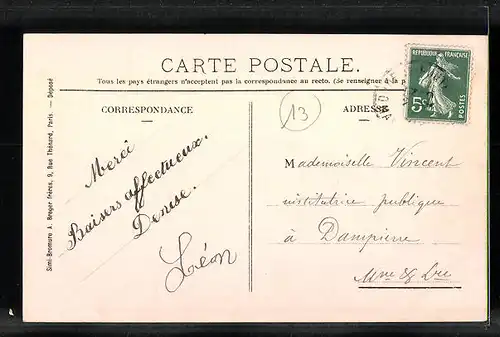 CARTE POSTALE.
Tous les pays étrangers n'acceptent pas la correspondance au recto. (Se renseigner à la p
CORRESPONDANCE
ADRESSE
13
REPUBLIQUE FRANÇAISE
5c
POSTES
Merci
Baisers affectueux.
Denise.
Léon
Mademoiselle Vincent
institutrice publique
à Dampierre
Mne & Lre
Simi-Bromure A. Breger frères, 9, Rue Thénard, Paris. — Déposé